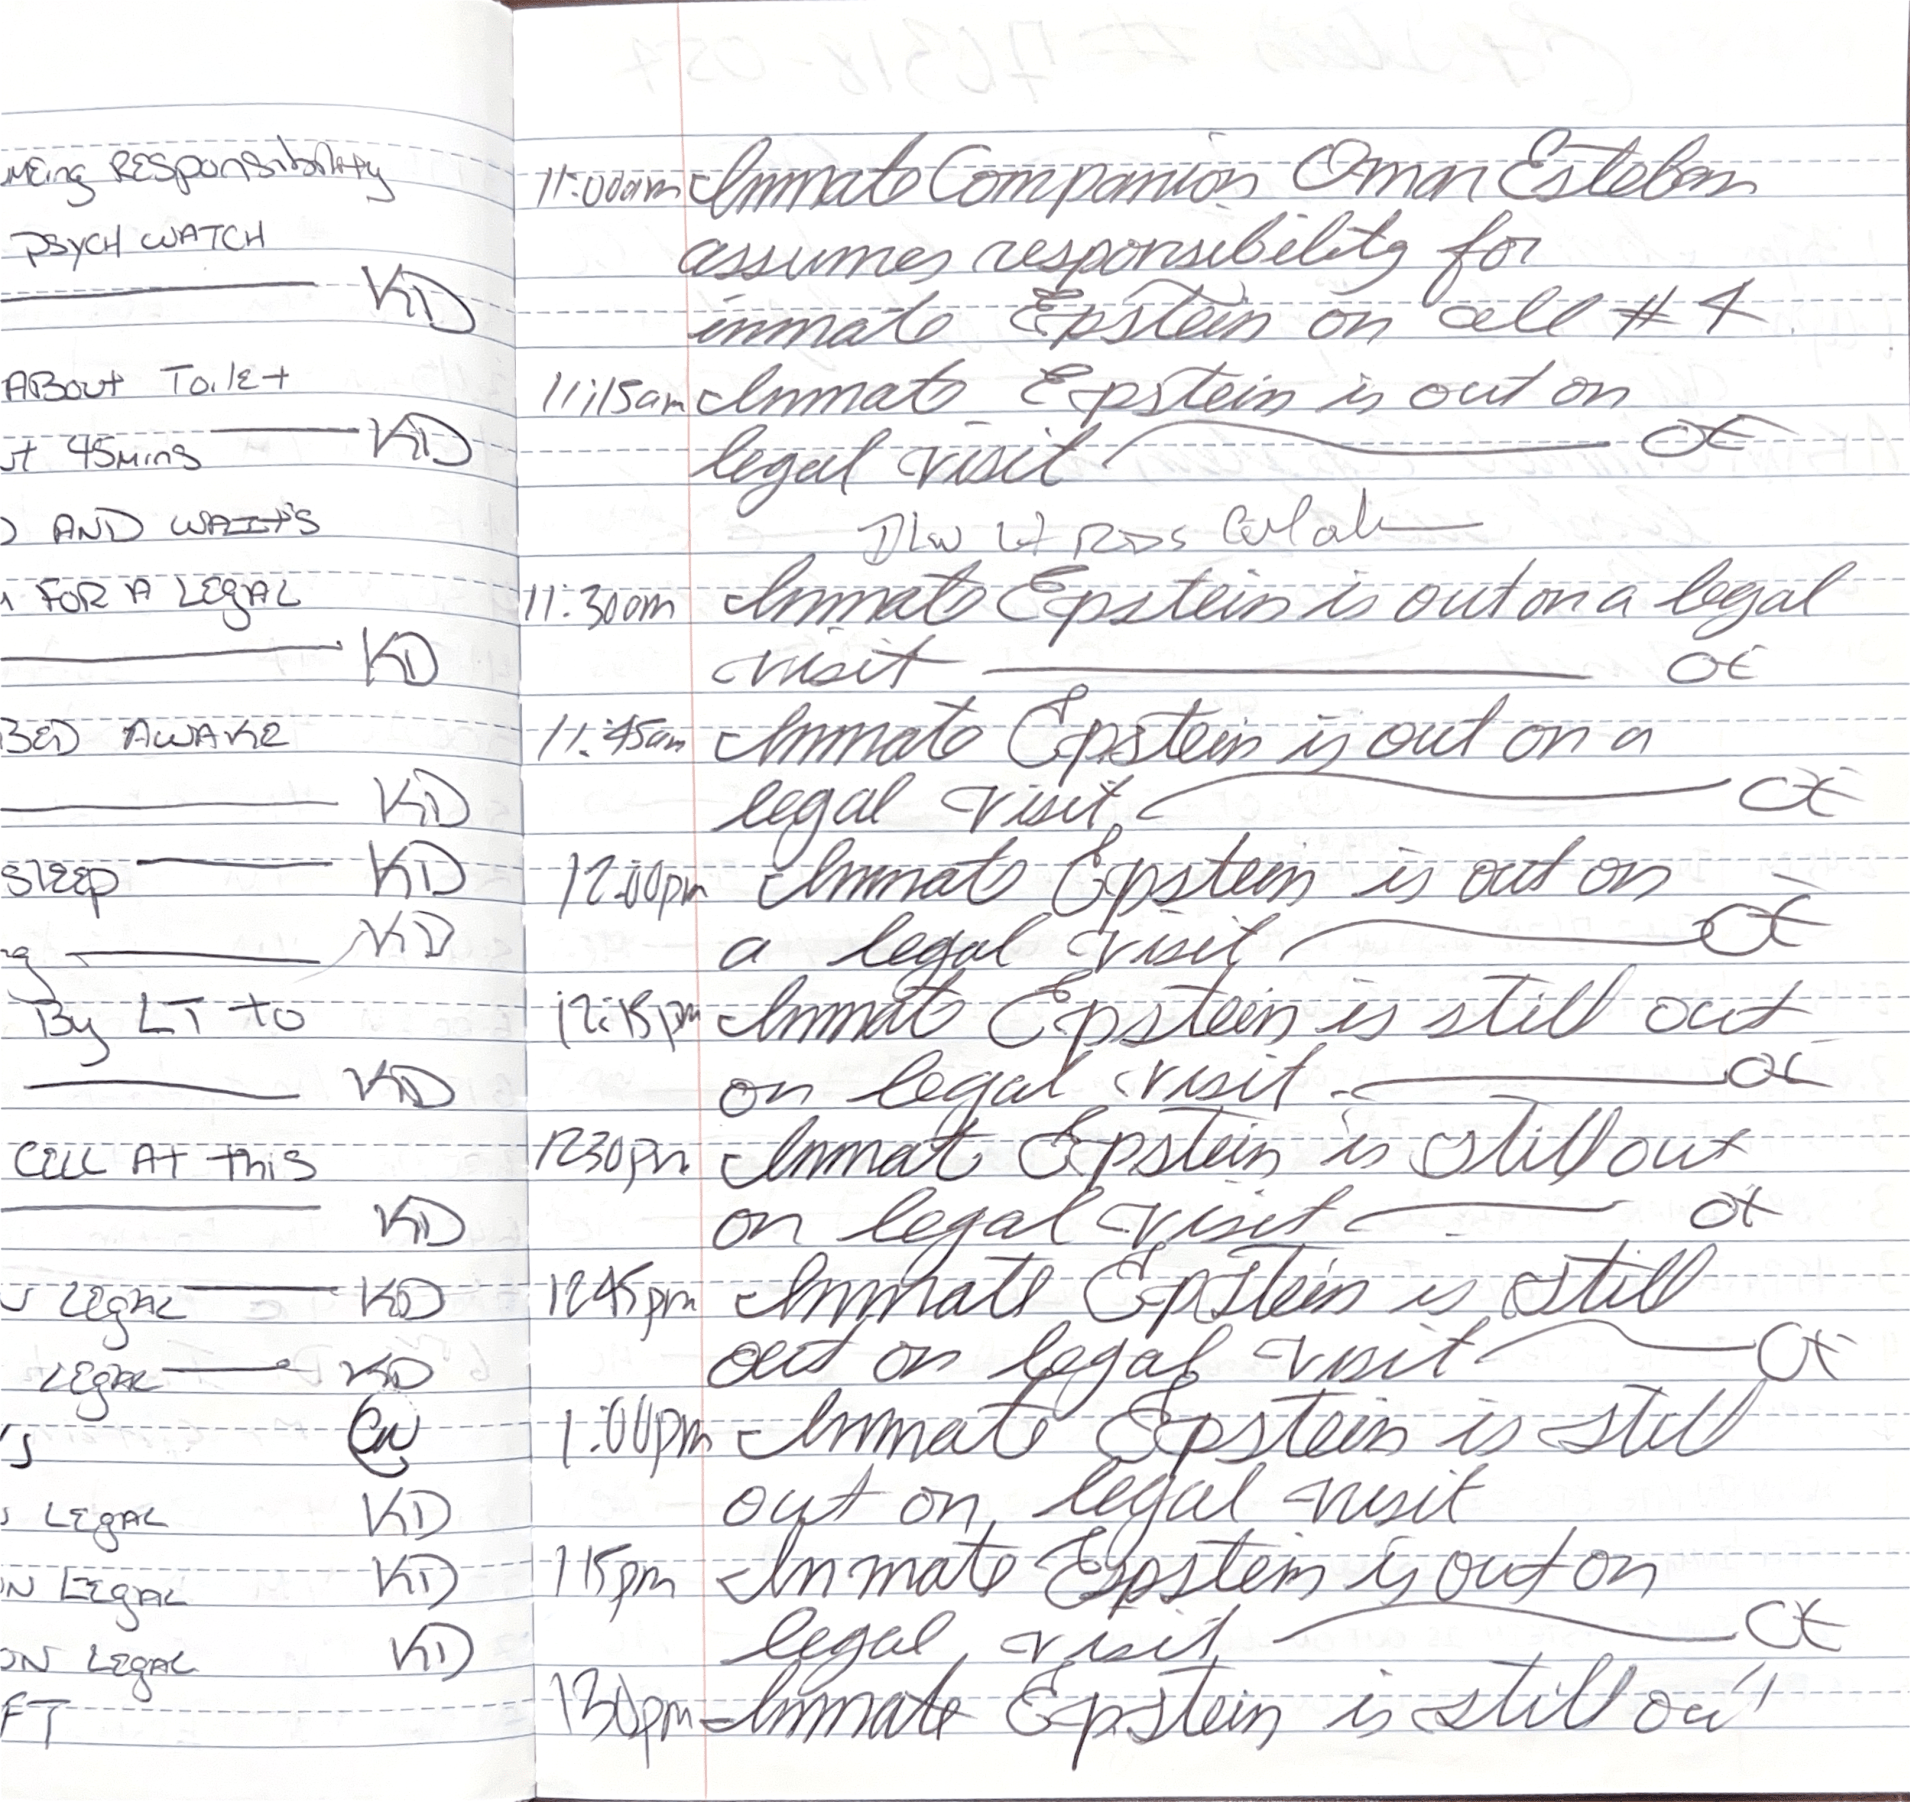 mEing RESponsibility
PSYCH WATCH
KD
ABout Toilet
45Mins KD
AND WAITS
FOR A LEGAL
KD
BED AWAKE
KD
SlEEp KD
KD
By LT to
KD
CELL At this
KD
LEgAL KD
LEgAL KD
LEgAL KD
LEgAL KD
ON LEgAL KD
FT
11:00am Inmate Companion Omar Esteban
assumes responsibility for
inmate Epstein on cell # 4
11:15am Inmate Epstein is out on
legal visit OE
11:30am Inmate Epstein is out on a legal
visit OE
11:45am Inmate Epstein is out on a
legal visit OE
12:00pm Inmate Epstein is out on
a legal visit OE
12:15pm Inmate Epstein is still out
on legal visit. OE
1230pm Inmate Epstein is still out
on legal visit OE
1245pm Inmate Epstein is still
out on legal visit OE
1:00pm Inmate Epstein is still
out on legal visit
115pm Inmate Epstein is out on
legal visit OE
130pm Inmate Epstein is still out